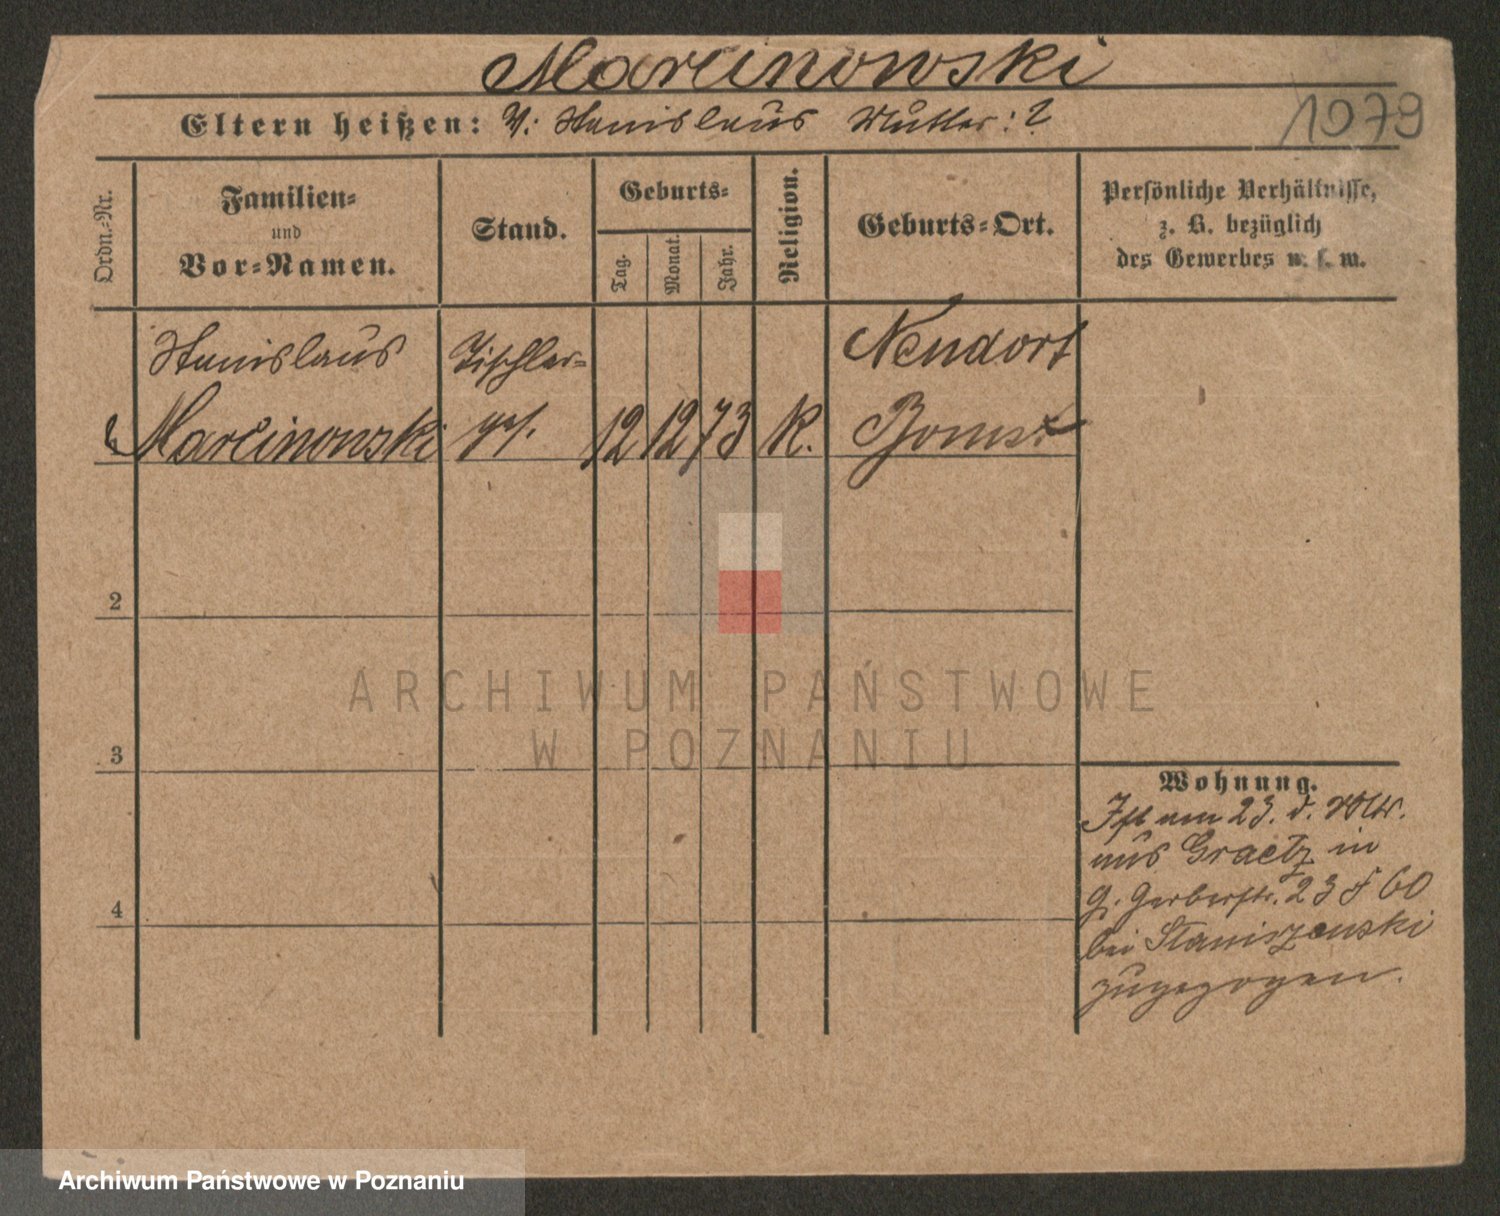 Marcinowski
Eltern heißen: V: Stanislaus Mutter: ?
1079
Ordn.=Nr.
Familien=
und
Vor=Namen.
Stand.
Geburts=
Tag.
Monat.
Jahr.
Religion.
Geburts=Ort.
Persönliche Verhältnisse,
z. B. bezüglich
des Gewerbes u. s. w.
Stanislaus Tischler= Neudorf
Marcinowski ges. 12 12 73 K. Bomst
2
3
4
Wohnung.
Ist am 23. d. Mts.
aus Graetz in
G. Gerberstr. 23 60
bei Staniszewski
zugezogen.
ARCHIWUM PAŃSTWOWE
W POZNANIU
Archiwum Państwowe w Poznaniu